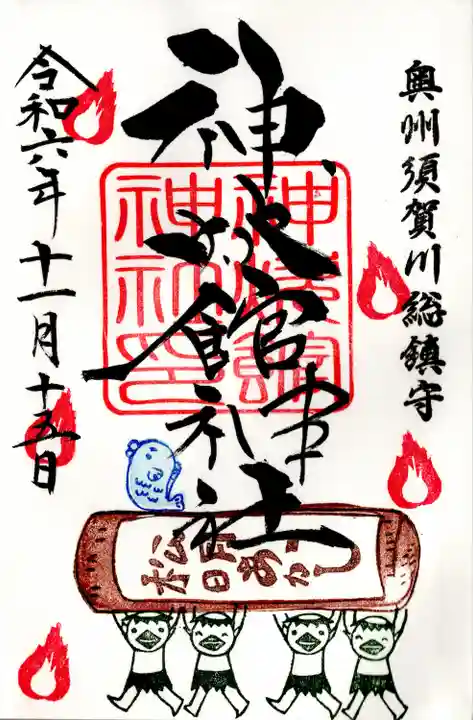 奥州須賀川総鎮守
神炊館神社
神炊館
神社印
令和六年十一月十五日
松明あかし